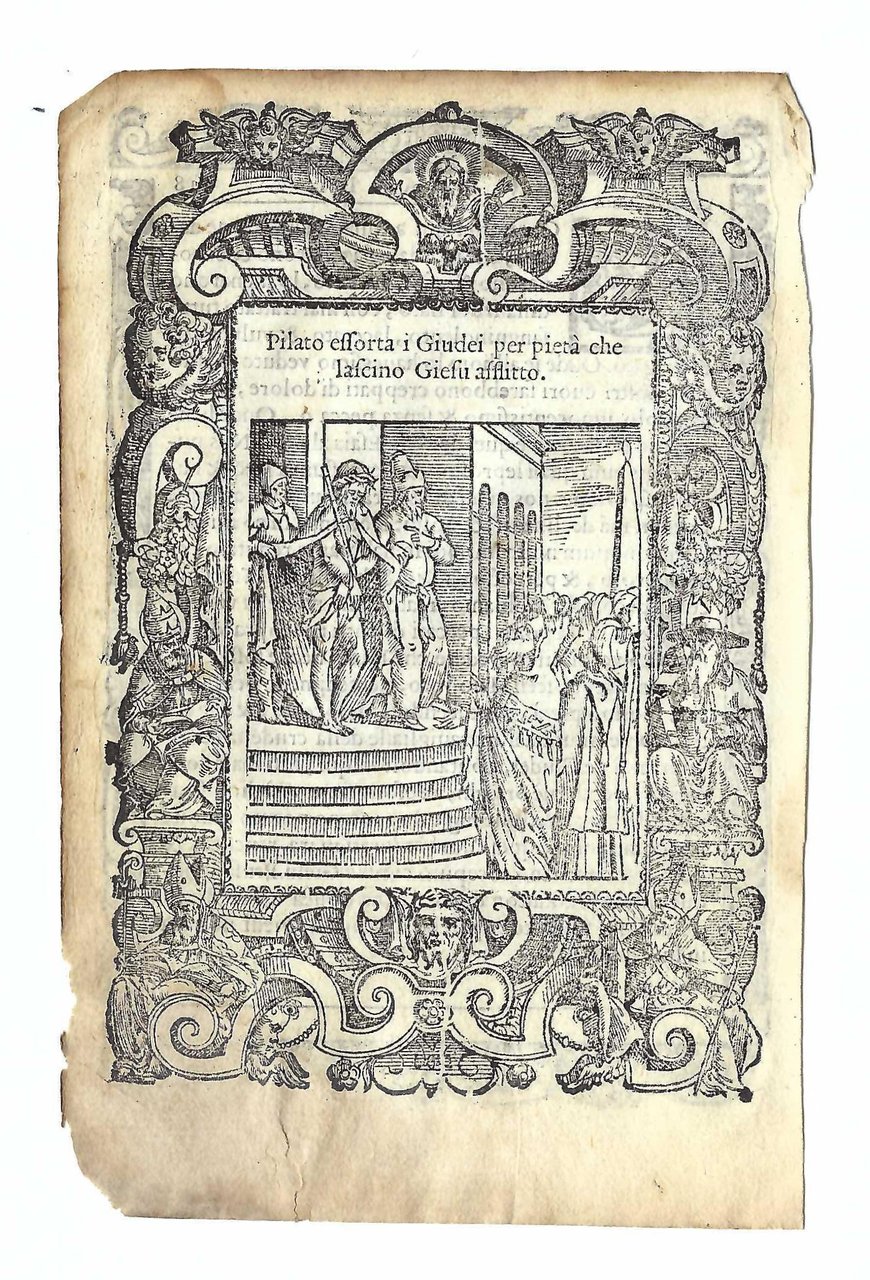 Pilato essorta i Giudei per pietà che
lascino Giesu afflitto.